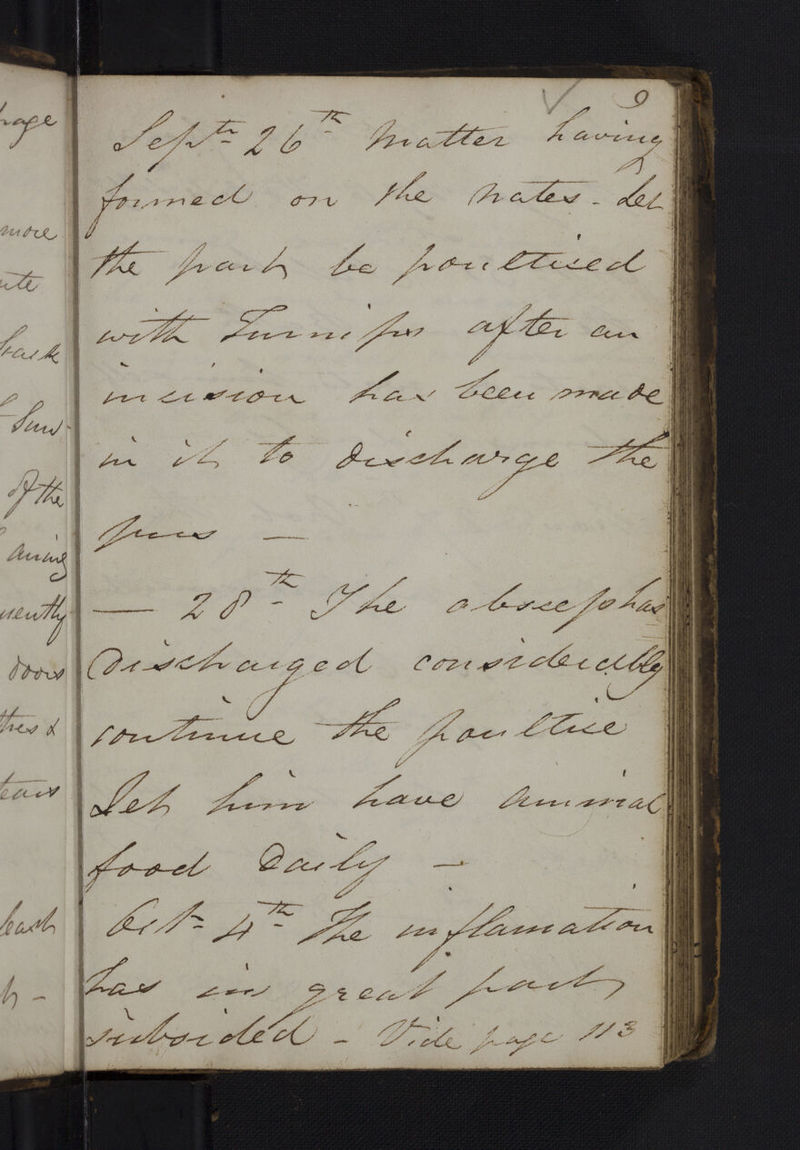 hage
more
ute
back
Sun-
of the
uently
doors
thes &
tears
9
Septr 26th Matter having
formed on the nates - Let
the part be poultised
with Turnips after an
incision has been made
in it to discharge the
pus —
— 28th The abscess has
discharged considerably
continue the poultise
Let him have animal
food Daily —
Oct 4th The inflamation
has in great part
subsided - Vide page 113